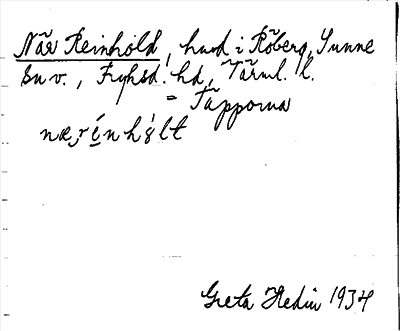 När Reinhold, hmd i Röberg, Sunne
sn v., Fryksd. hd, Värml. l.
= Täpporna
nærínhólt
Greta Hedin 1934